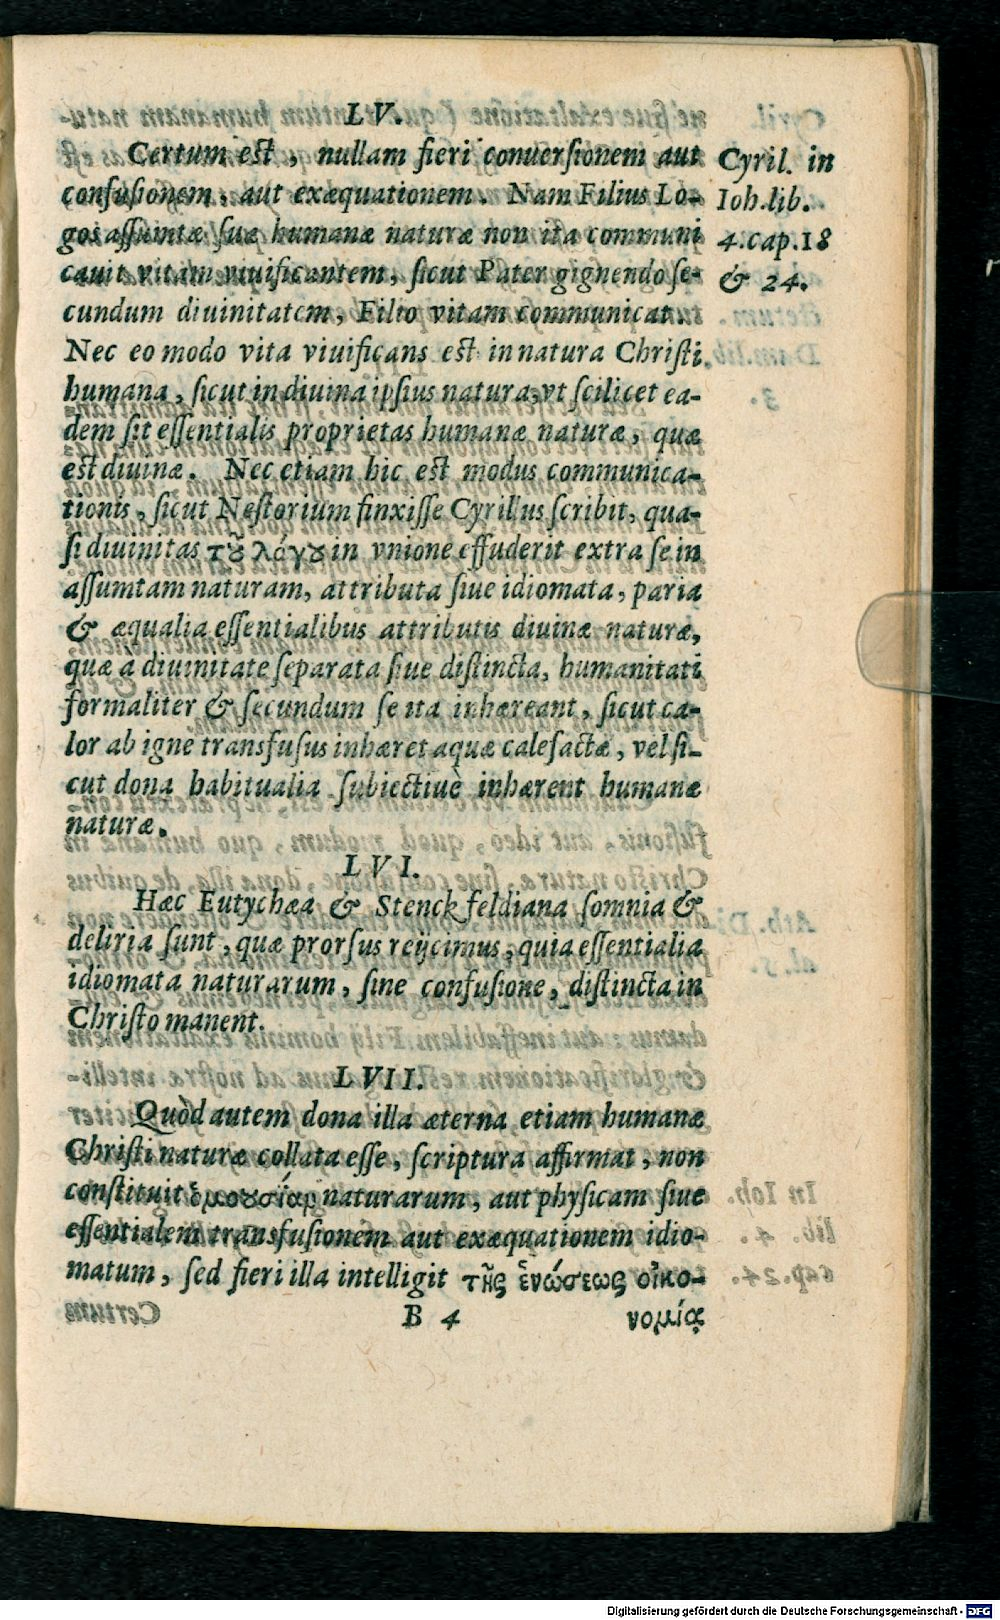 LV.
Certum est, nullam fieri conuersionem aut
confusionem, aut exæquationem. Nam Filius Lo-
gos assumtæ suæ humanæ naturæ non ita communi
cauit vitam viuificantem, sicut Pater gignendo se-
cundum diuinitatem, Filio vitam communicat.
Nec eo modo vita viuificans est in natura Christi
humana, sicut in diuina ipsius natura, vt scilicet ea-
dem sit essentialis proprietas humanæ naturæ, quæ
est diuinæ. Nec etiam hic est modus communica-
tionis, sicut Nestorium finxisse Cyrillus scribit, qua-
si diuinitas τοῦ λόγου in vnione effuderit extra se in
assumtam naturam, attributa siue idiomata, paria
& æqualia essentialibus attributis diuinæ naturæ,
quæ à diuinitate separata siue distincta, humanitati
formaliter & secundum se ita inhæreant, sicut ca-
lor ab igne transfusus inhæret aquæ calefactæ, vel si-
cut dona habitualia subiectiuè inhærent humanæ
naturæ.
Cyril. in
Ioh. lib.
4. cap. 18
& 24.
LVI.
Hæc Eutychæa & Stenckfeldiana somnia &
deliria sunt, quæ prorsus reijcimus, quia essentialia
idiomata naturarum, sine confusione, distincta in
Christo manent.
LVII.
Quòd autem dona illa æterna etiam humanæ
Christi naturæ collata esse, scriptura affirmat, non
constituit ὁμουσίαν naturarum, aut physicam siue
essentialem transfusionem aut exæquationem idio-
matum, sed fieri illa intelligit τῆς ἑνώσεως οἰκο-
B 4 νομίᾳ
Digitalisierung gefördert durch die Deutsche Forschungsgemeinschaft - DFG